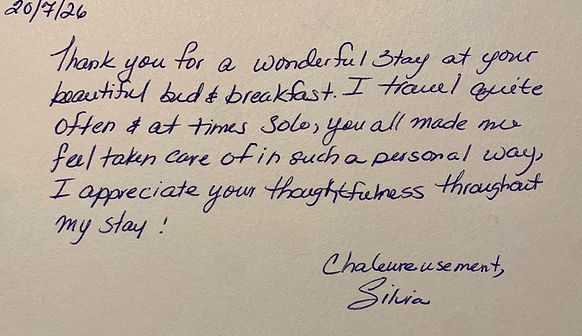 20/7/26
Thank you for a wonderful stay at your
beautiful bed & breakfast. I travel quite
often & at times solo, you all made me
feel taken care of in such a personal way,
I appreciate your thoughtfulness throughout
my stay !
Chaleureusement,
Silvia